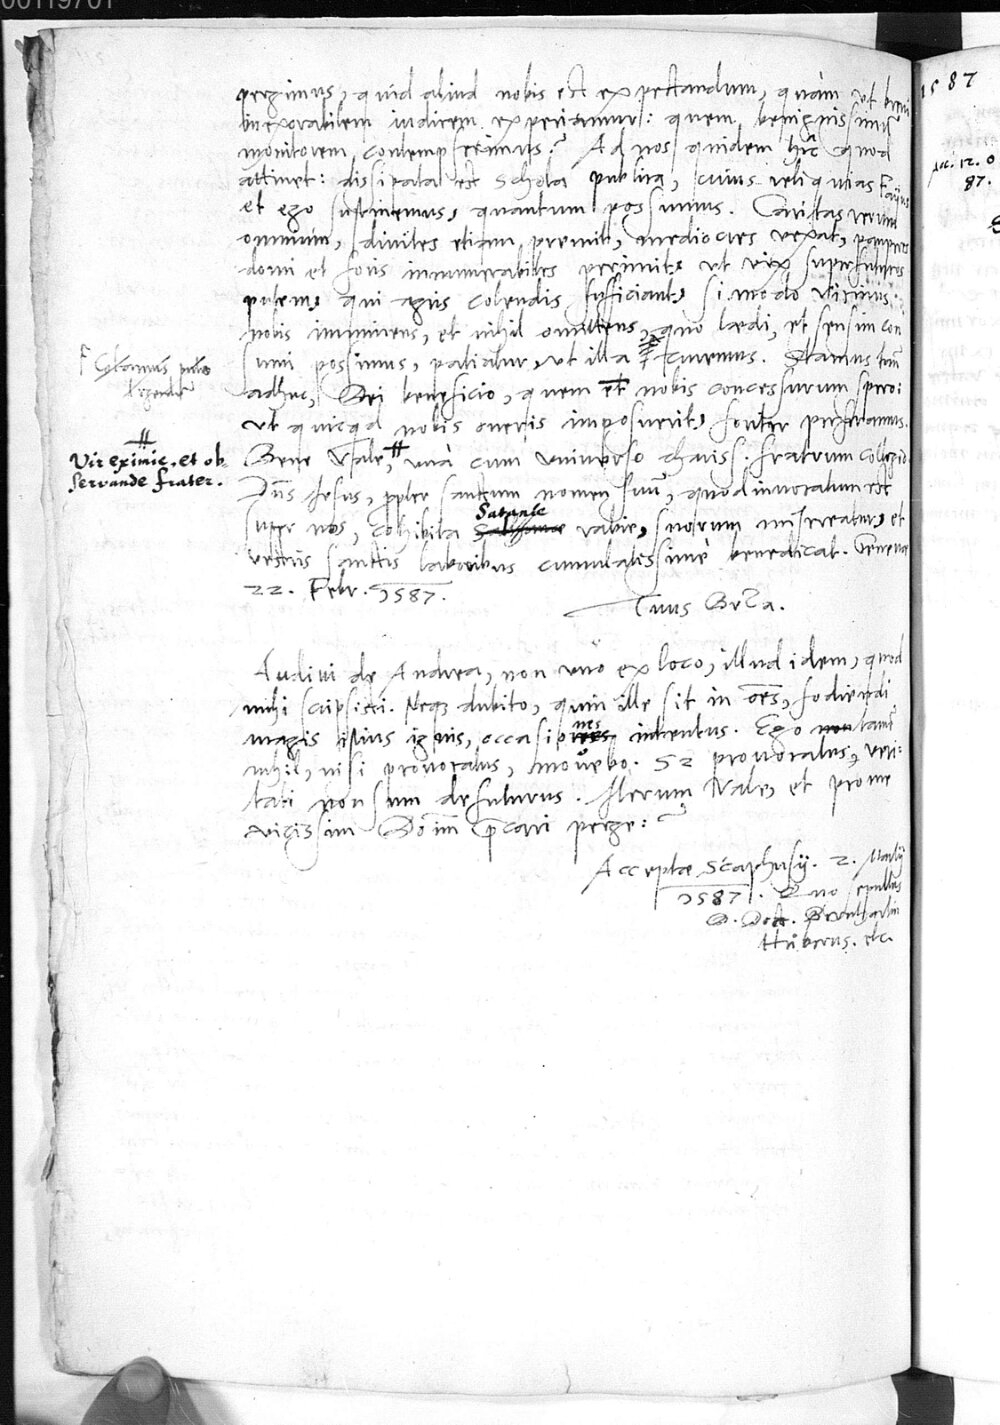 00119701
pergimus, quid aliud nobis est expectandum, quàm ut brevi
inexorabilem iudicem experiamur: quem benignissimū
monitorem contempserimus? Ad nos quidem hîc quod
attinet: dissipata est schola publica, cuius reliquias Faijus
et ego sustinemus, quantum possumus. Caritas rerum
omnium, divites etiam premit, mediocres vexat, pauperes
domi et foris innumerabiles perimit, ut vix superfuturos
putem, qui agris colendis sufficiant, si modo vicinus
nobis imminens, et nihil omittens, quo laedi, et sensim con
sumi possimus, patiatur, ut illa curemus. Stamus tamē
adhuc, Dei beneficio, quem et nobis concessurum spero:
ut quicqd nobis oneris imposuerit, fortiter perferamus.
Bene Vale, # unà cum universo chariss. fratrum collegio
Dn̄s Jesus, ppter sanctum nomen suū, quod invocatum est
super nos, cohibita Satanae rabie, suorum misereatur, et
vestris sanctis laboribus cumulatissimè benedicat. Genevae
22. Febr. 1587.
Tuus Beza.
legendū
#
Vir eximie, et ob-
servande frater.
Audivi de Andrea, non uno ex loco, illud idem, quod
mihi scripsisti. Neq dubito, quin ille sit in om̄es, fodiendi
magis istius ignis, occasiones intentus. Ego tamē
nihil, nisi provocatus, movebo. Si provocatus, veri-
tati non sum defuturus. Iterum Vale, et pro me
vicissim Dom̄ p̄cari perge:
Acceptae Scaphusij. 2. Martij
1587. Quo sepultus
D. Doct.
Hůberus. etc.
1587
12. 0
87.